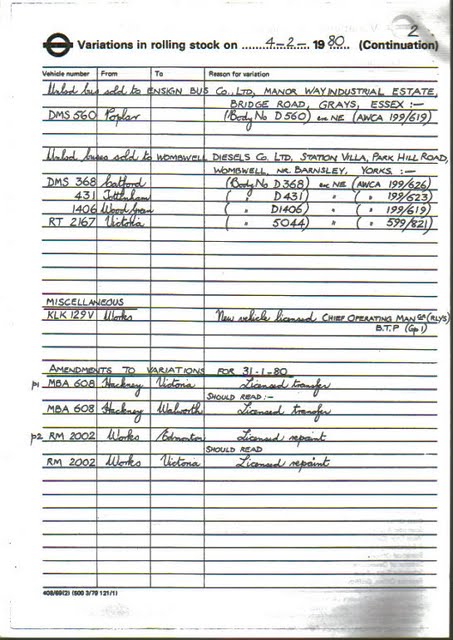 2
Variations in rolling stock on 4-2- 1980 (Continuation)
Vehicle number From To Reason for variation
Unlsd bus sold to ENSIGN BUS CO., LTD, MANOR WAY INDUSTRIAL ESTATE,
BRIDGE ROAD, GRAYS, ESSEX :—
DMS 560 Poplar (Body No D560) ex NE (AWCA 199/619)
Unlsd buses sold to WOMBWELL DIESELS CO. LTD, STATION VILLA, PARK HILL ROAD,
WOMBWELL, NR. BARNSLEY, YORKS. :—
DMS 368 Catford (Body No D368) ex NE (AWCA 199/626)
431 Tottenham ( " D431) " ( " 199/623)
1406 Wood Green ( " D1406) " ( " 199/619)
RT 2167 Victoria ( " 5044) " ( " 599/821)
MISCELLANEOUS
KLK 129V Works New vehicle licensed CHIEF OPERATING MANGR (RLYS)
B.T.P (Gp 1)
AMENDMENTS TO VARIATIONS FOR 31-1-80
p1 MBA 608 Hackney Victoria Licensed transfer
SHOULD READ :-
MBA 608 Hackney Walworth Licensed transfer
p2 RM 2002 Works Edmonton Licensed repaint
SHOULD READ
RM 2002 Works Victoria Licensed repaint
408/69(2) (500 3/79 121/1)